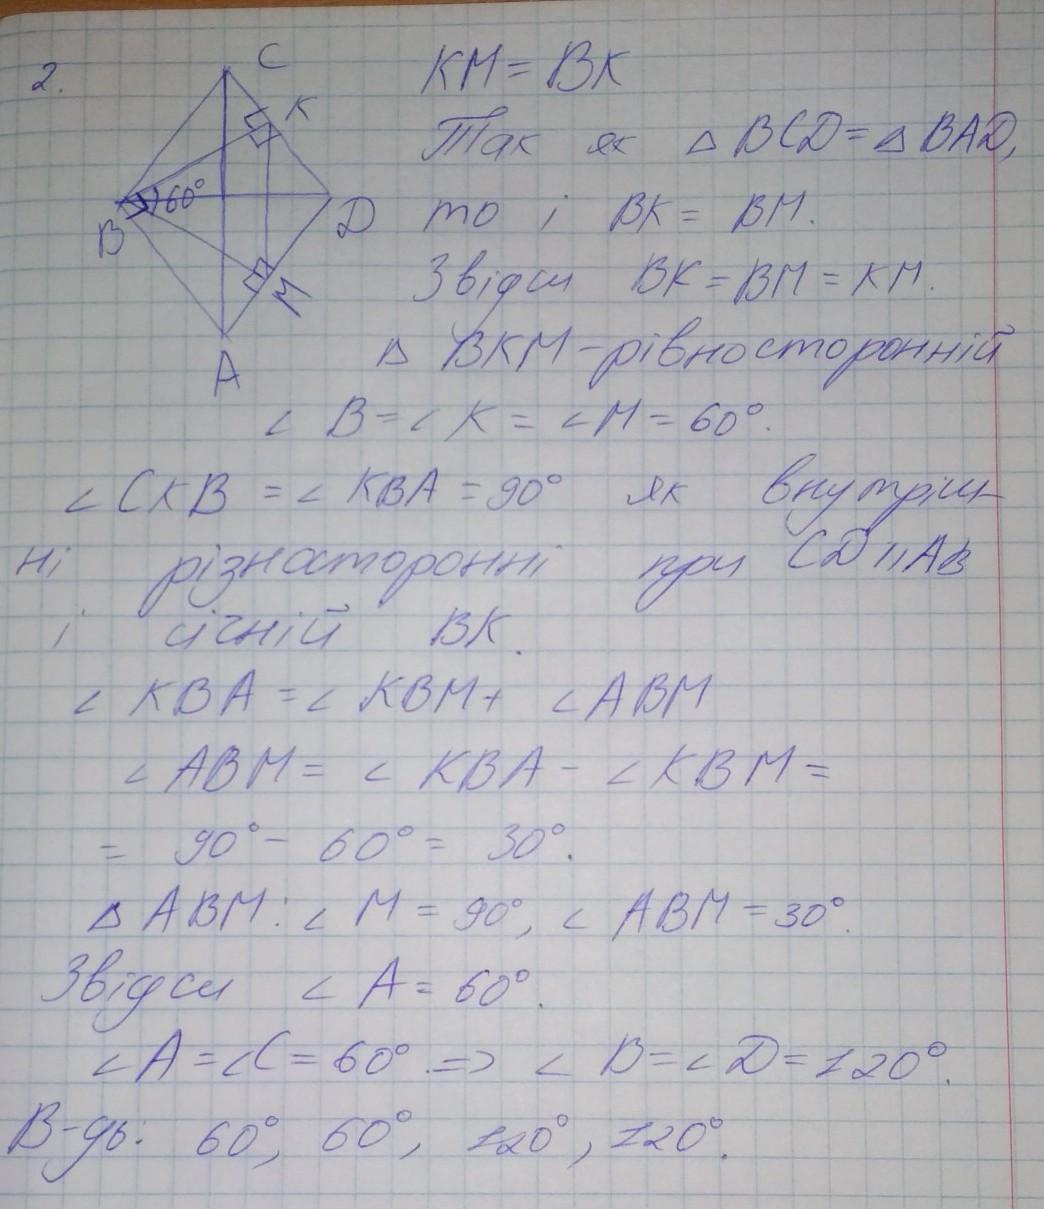 2.
C
K
60°
B
D
M
A
KM = BK
Так як △ BCD = △ BAD,
то і BK = BM.
Звідси BK = BM = KM.
△ BKM - рівносторонній
∠ B = ∠ K = ∠ M = 60°.
∠ CKB = ∠ KBA = 90° як внутріш-
ні різносторонні при CD || AB
і січній BK.
∠ KBA = ∠ KBM + ∠ ABM
∠ ABM = ∠ KBA - ∠ KBM =
= 90° - 60° = 30°.
△ ABM: ∠ M = 90°, ∠ ABM = 30°.
Звідси ∠ A = 60°.
∠ A = ∠ C = 60° => ∠ B = ∠ D = 120°.
В-дь: 60°, 60°, 120°, 120°.